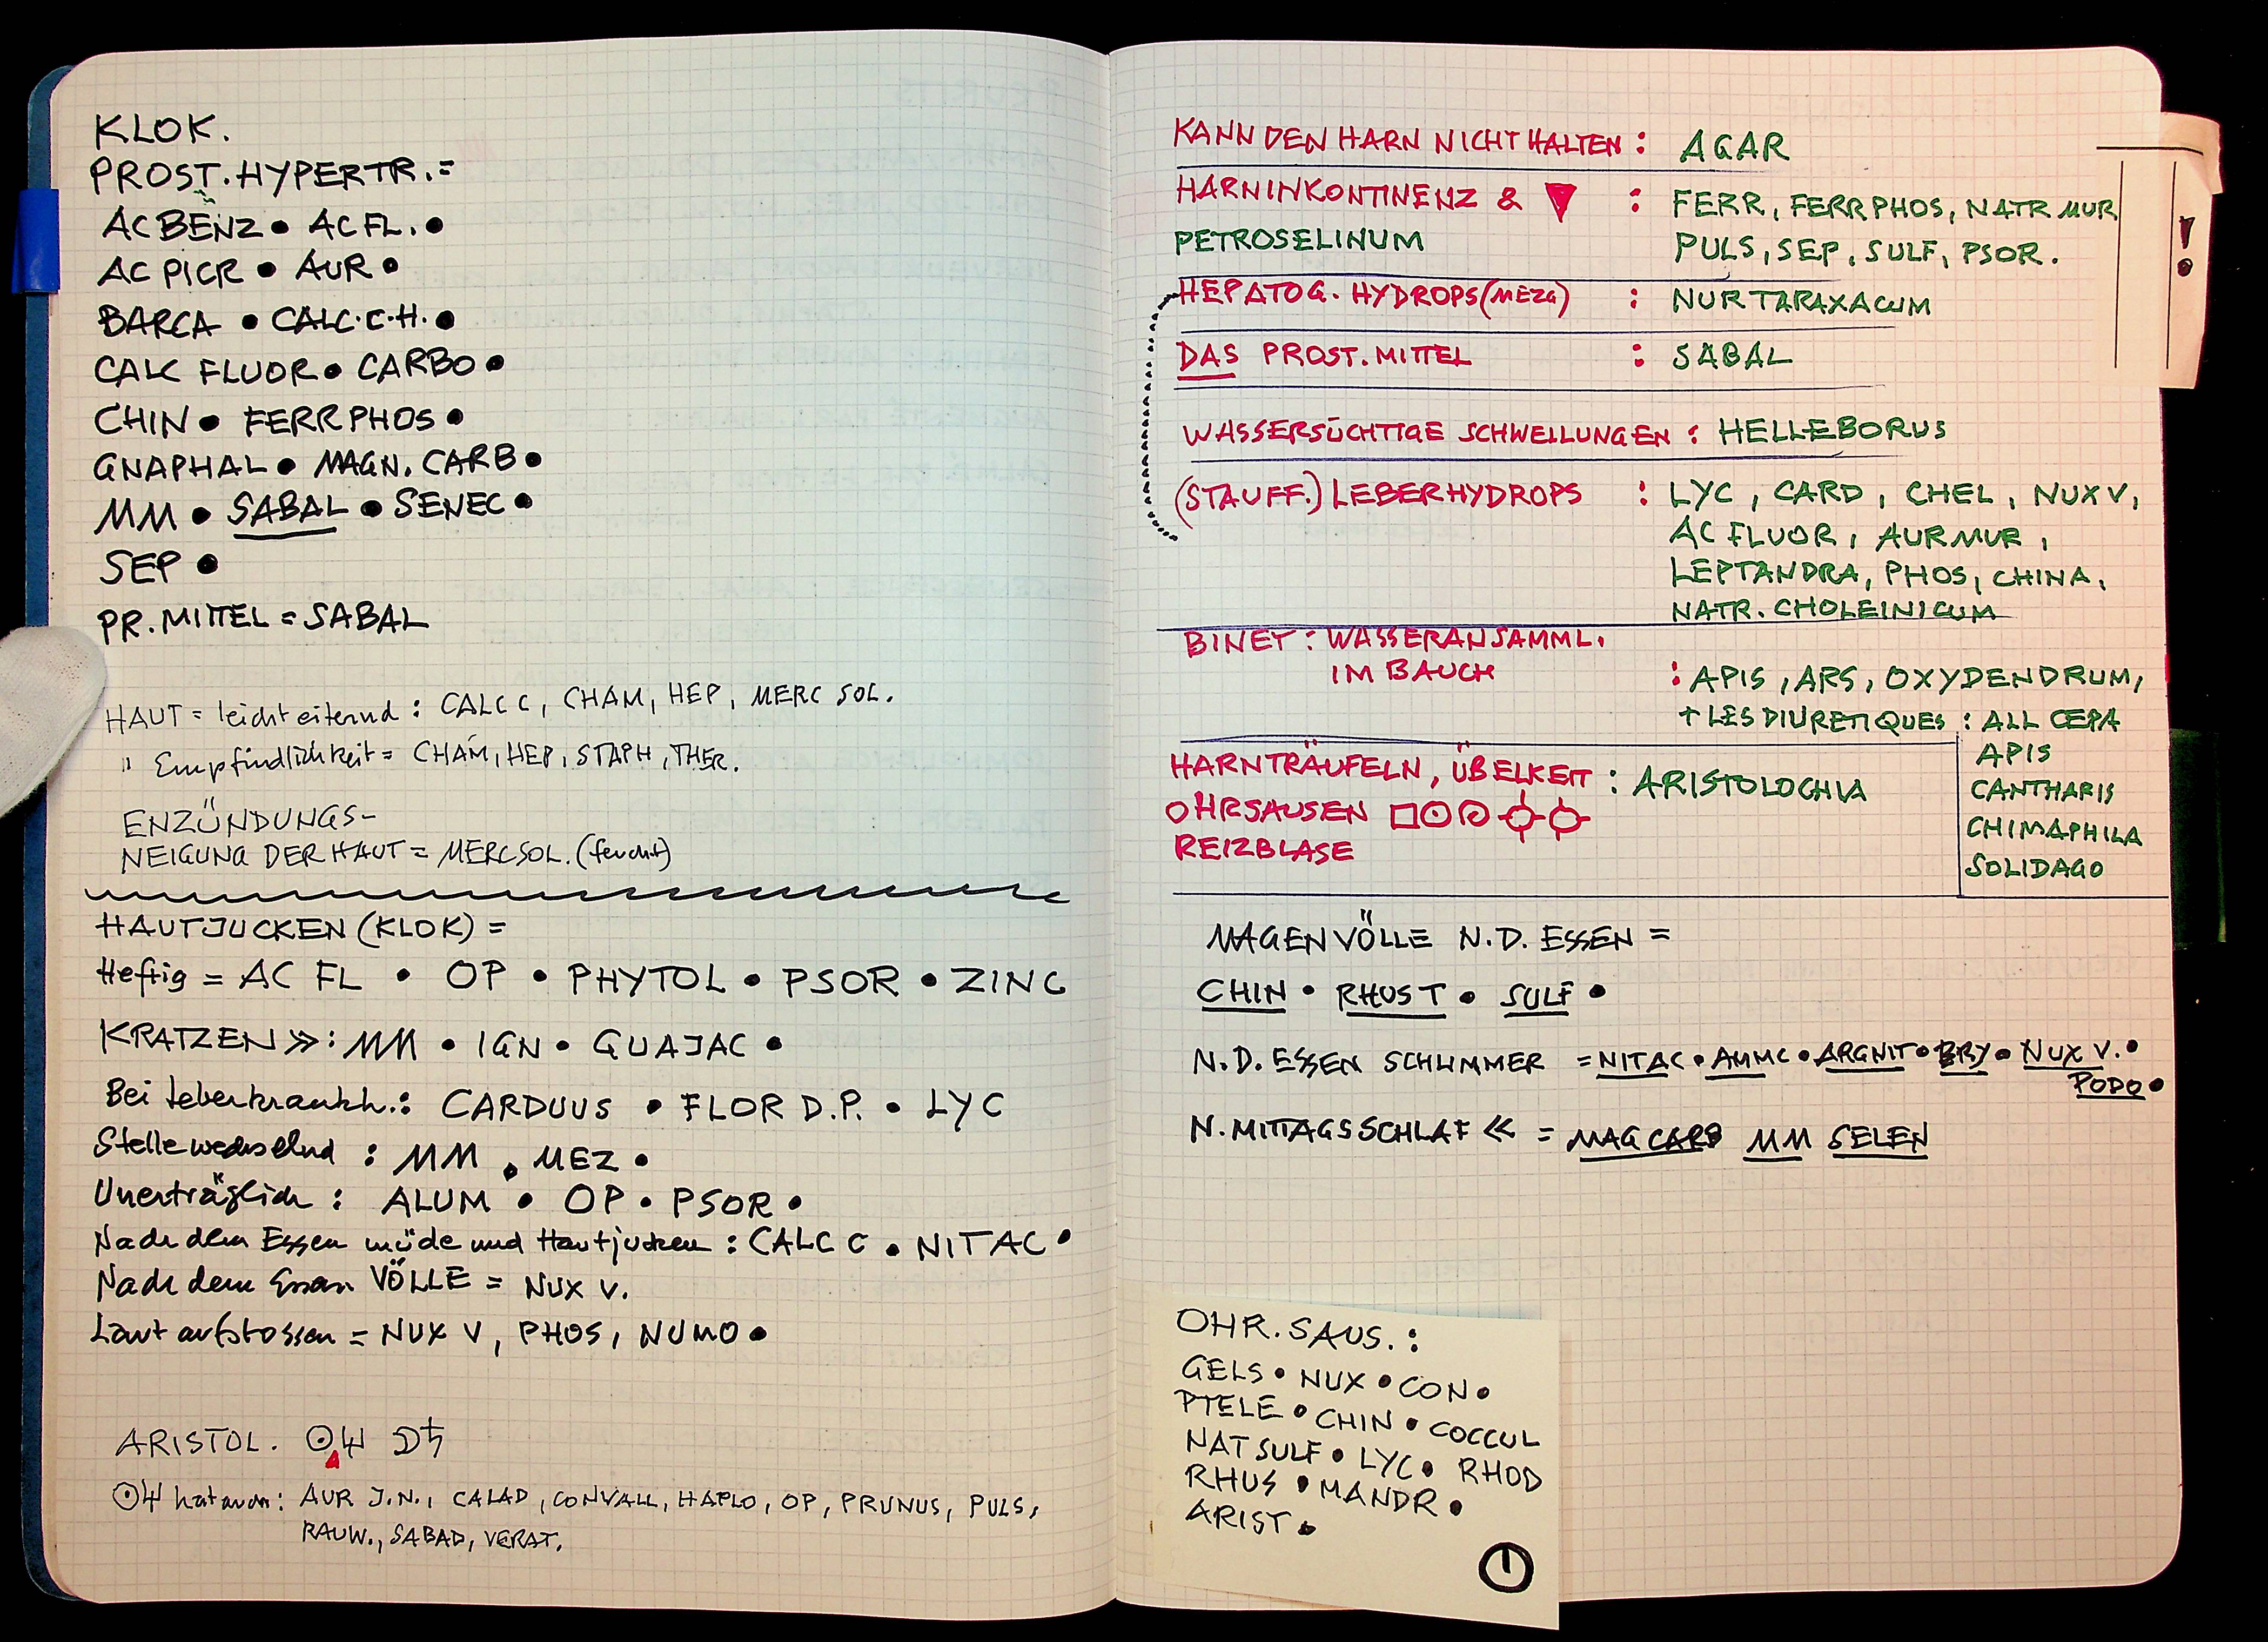 KLOK.
PROST. HYPERTR. =
AC BENZ • AC FL. •
AC PICR • AUR •
BARCA • CALC.C.H. •
CALC FLUOR • CARBO •
CHIN • FERR PHOS •
GNAPHAL • MAGN. CARB •
MM • SABAL • SENEC •
SEP •
PR. MITTEL = SABAL
HAUT = leicht eiternd : CALC C, CHAM, HEP, MERC SOL.
" Empfindlichkeit = CHAM, HEP, STAPH, THER.
ENZÜNDUNGS-
NEIGUNG DER HAUT = MERC SOL. (feucht)
HAUTJUCKEN (KLOK) =
Heftig = AC FL • OP • PHYTOL • PSOR • ZINC
KRATZEN >> : MM • IGN • GUAJAC •
Bei Leberkrankh.: CARDUUS • FLOR D.P. • LYC
Stelle wechselnd : MM • MEZ •
Unerträglich : ALUM • OP • PSOR •
Nach dem Essen müde und Hautjucken : CALC C • NIT AC •
Nach dem Essen VÖLLE = NUX V.
Laut aufstossen = NUX V, PHOS, NUMO •
ARISTOL. ☉♆ ☽♄
☉♆ hat auch : AUR J.N., CALAD, CONVALL, HAPLO, OP, PRUNUS, PULS,
RAUW., SABAD, VERAT.
KANN DEN HARN NICHT HALTEN : AGAR
HARNINKONTINENZ & ▼ : FERR, FERR PHOS, NATR MUR
PETROSELINUM PULS, SEP, SULF, PSOR.
HEPATOG. HYDROPS (MEZG) : NUR TARAXACUM
DAS PROST. MITTEL : SABAL
WASSERSÜCHTIGE SCHWELLUNGEN : HELLEBORUS
(STAUFF.) LEBERHYDROPS : LYC, CARD, CHEL, NUX V,
AC FLUOR, AUR MUR,
LEPTANDRA, PHOS, CHINA,
NATR. CHOLEINICUM
BINET : WASSERANSAMML.
IM BAUCH : APIS, ARS, OXYDENDRUM,
+ LES DIURETIQUES : ALL CEPA
APIS
CANTHARIS
CHIMAPHILA
SOLIDAGO
HARNTRÄUFELN, ÜBELKEIT : ARISTOLOCHIA
OHRSAUSEN
REIZBLASE
MAGENVÖLLE N.D. ESSEN =
CHIN • RHUS T • SULF •
N.D. ESSEN SCHLIMMER = NIT AC • AMM C • ARG NIT • BRY • NUX V. •
PODO •
N. MITTAGSSCHLAF << = MAG CARB MM SELEN
OHR. SAUS. :
GELS • NUX • CON •
PTELE • CHIN • COCCUL
NAT SULF • LYC • RHOD
RHUS • MANDR •
ARIST •
!